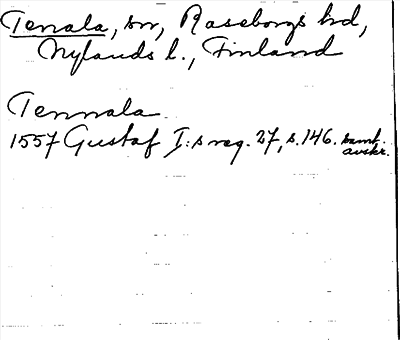 Tenala, sn, Raseborgs hd,
Nylands l., Finland
Tennala
1557 Gustaf I:s reg. 27, s. 146. samt.
avskr.